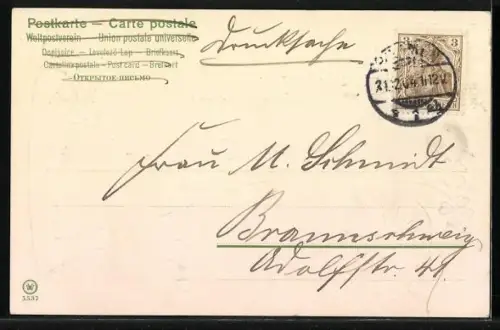 Postkarte – Carte postale
Weltpostverein – Union postale universelle
Dopisnice – Levelező-Lap – Brefkort
Cartolina postale – Post card – Brevkort
–ОТКРЫТОЕ ПИСЬМО–
Drucksache
3 3
Frau M. Schmidt
Braunschweig
Adolfstr. 41
5337